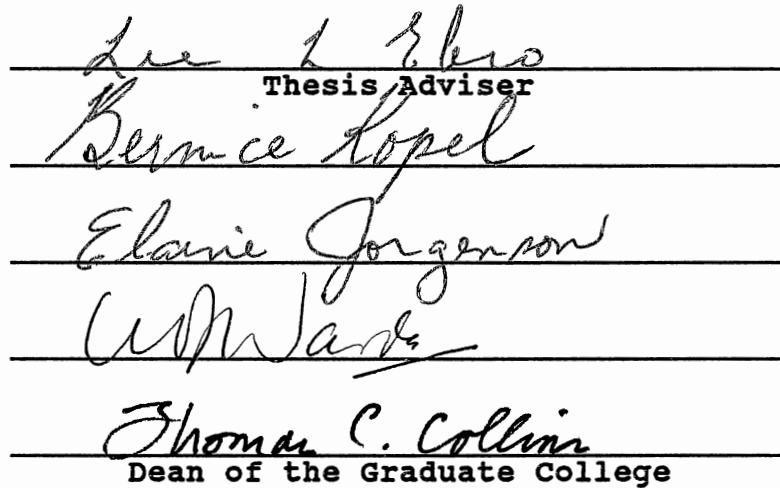 Lea L Ebro
Thesis Adviser
Bernice Kopel
Elaine Jorgenson
Thomas C. Collins
Dean of the Graduate College